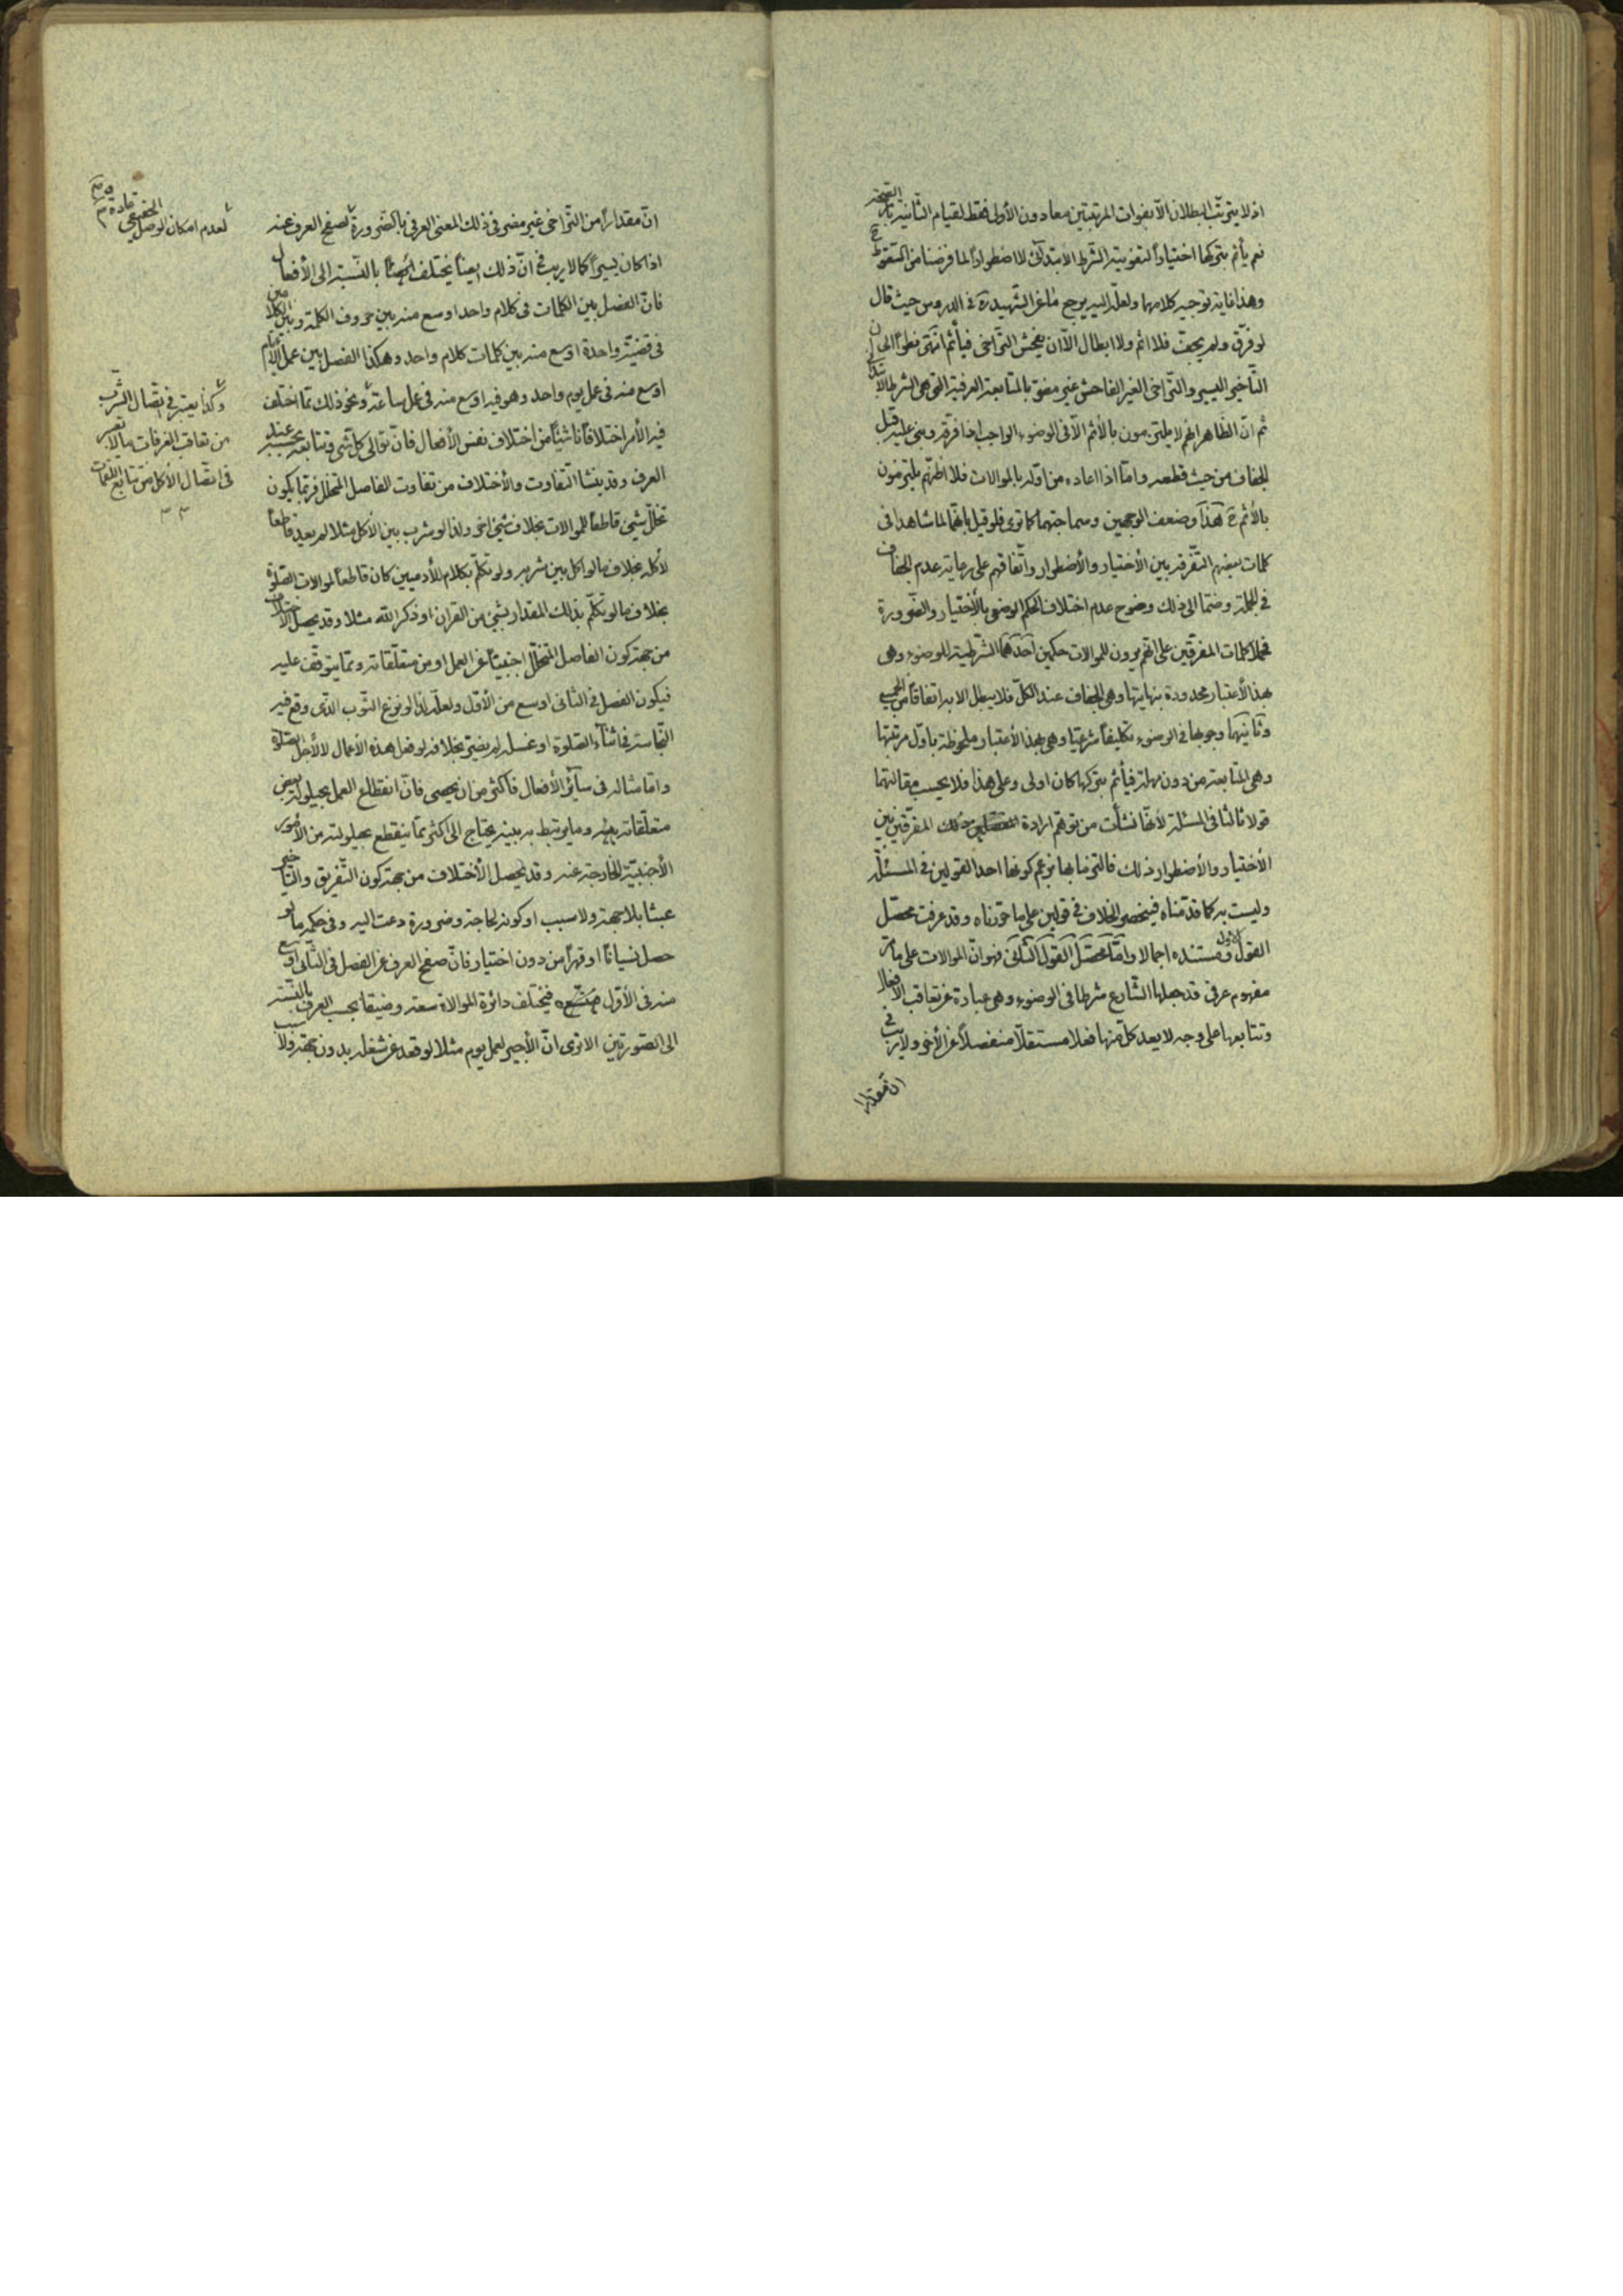 اذ لا يترتّب البطلان الّا بفوات المرتبتين معا دون الأولى فقط لقيام الثانية تمام الصّحّة
نعم يأثم بتركها اختياراً لتفويته الشّرط الابتدائى لا اضطراراً لما فرضنا من السّقوط ح
وهذا غاية توجيه كلامهما ولعلّه اليه يرجع ما عن الشّهيد ره فى الدروس حيث قال
لو فرّق ولم يجفّ فلا اثم ولا ابطال الّا ان يفحش التّراخى فيأثم انتهى نظراً الى انّ
التّأخير اليسير والتّراخى الغير الفاحش غير مضرّ بالمتابعة العرفيّة الّتى هى الشرط الابتدائى
ثم انّ الظّاهر انّهم لا يلتزمون بالأثم الّا فى الوضوء الواجب اذا فرّقه وبنى عليه قبل
الجفاف من حيث قطعه وامّا اذا اعاده من اوّله بالموالات فلا اظنّهم يلتزمون
بالأثم ح هذا وضعف الوجهين وسماجتهما كما ترى فلو قيل بانّهما لما شاهدا فى
كلمات بعضهم التّفرقة بين الأختيار والأضطرار واتّفاقهم على رعاية عدم الجفاف
فى الجملة وضمّا الى ذلك وضوح عدم اختلاف الحكم الوضعى بالأختيار والضّرورة
فحملا كلمات المفرّقين على انّهم يرون للموالات حكمين احدهما الشّرطيّة للوضوء وهى
بهذا الأعتبار محدودة بنهايتها وهى الجفاف عند الكلّ فلا يبطل الا به اتّفاقاً من الجميع
وثانيهما وجوبها فى الوضوء تكليفاً شرعيّا وهى بهذا الأعتبار ملحوظة باوّل مرتبتها
وهى المتابعة من دون مهلة فيأثم بتركها كان اولى وعلى هذا فلا يحسب مقالتهما
قولا ثالثا فى المسئلة لأنّها نشأت من توهّم ارادة المفرّقين بين
الأختيار والأضطرار ذلك فالتزما بها بزعم كونها احد القولين فى المسئلة
وليست به كما قدّمناه فينحصر الخلاف فى قولين على ما حرّرناه وقد عرفت محصّل
القول الأول ومستنده اجمالا وامّا محصّل القول الثّانى فهو انّ الموالات على ما مرّ
مفهوم عرفى قد جعلها الشّارع شرطا فى الوضوء وهى عبارة عن تعاقب الأفعال
وتتابعها على وجه لا يعدّ كلّ منها فعلا مستقلّاً منفصلاً عن الأخر ولا ريب فى
انّ مقدارا
انّ مقداراً من التّراخى غير مضر فى ذلك المعنى العرفى بالضّرورة لصفح العرف عنه
اذا كان يسيراً كما لا ريب فى انّ ذلك ايضاً يختلف بالنّسبة الى الأفعال
فانّ الفصل بين الكلمات فى كلام واحد اوسع منه بين حروف الكلمة وبين الكلامين
فى قضيّة واحدة اوسع منه بين كلمات كلام واحد وهكذا الفصل بين عمل الأيّام
اوسع منه فى عمل يوم واحد وهو فيه اوسع منه فى عمل ساعة ونحو ذلك ممّا اختلف
فيه الأمر اختلافاً ناشئاً من اختلاف نفس الأفعال فانّ توالى كلّ شى وتتابعه بحسبه عند
العرف وقد ينشا التّفاوت والأختلاف من تفاوت الفاصل المتخلّل فربّما يكون
تخلّل شىء قاطعاً للموالات بخلاف شىء اخر ولذا لو شرب بين الأكل مثلا لم يعد قاطعاً
لأكله بخلاف ما لو اكل بين شربه ولو تكلّم بكلام للأدميين كان قاطعاً لموالات الصّلوة
بخلاف ما لو تكلّم بذلك المقدار بشىء من القران او ذكر الله مثلا وقد يحصل الأختلاف
من جهة كون الفاصل المتخلّل اجنبيّاً عن العمل او من متعلّقاته وممّا يتوقّف عليه
فيكون الفصل فى الثانى اوسع من الأوّل ولعلّه لذا لو نزع الثّوب الّذى وقع فيه
النّجاسة فى اثناء الصّلوة او غسله لم يضرّ بخلافه لو فعل هذه الأعمال لا لأجل الصّلوة
وامّا مثاله فى سائر الأفعال فأكثر من ان يحصى فانّ انقطاع العمل بحيلولة بعض
متعلّقاته بينه وما يرتبط به يحتاج الى اكثر ممّا ينقطع بحيلولته من الأمور
الأجنبيّة الخارجة عنه وقد يحصل الأختلاف من جهة كون التّفريق والتّأخير
عبثا بلا جهة ولا سبب او كونه لحاجة وضرورة دعت اليه وفى حكمه ما لو
حصل نسياناً او قهراً من دون اختيار فانّ صفح العرف عن الفصل فى الثّانى اوسع
منه فى الأوّل فيختلف دائرة الموالاة سعة وضيقا بحسب العرف بالنّسبة
الى الصّورتين الا ترى انّ الأجير لعمل يوم مثلا لو قعد عن شغله بدون جهة ولا سبب
لعدم امكان الوصل الحقيقى عادة م
وكذا يعتبر فى اتّصال الشّرب
من تعاقب الغرفات ما لا يعتبر
فى اتّصال الأكل من تتابع اللقمات